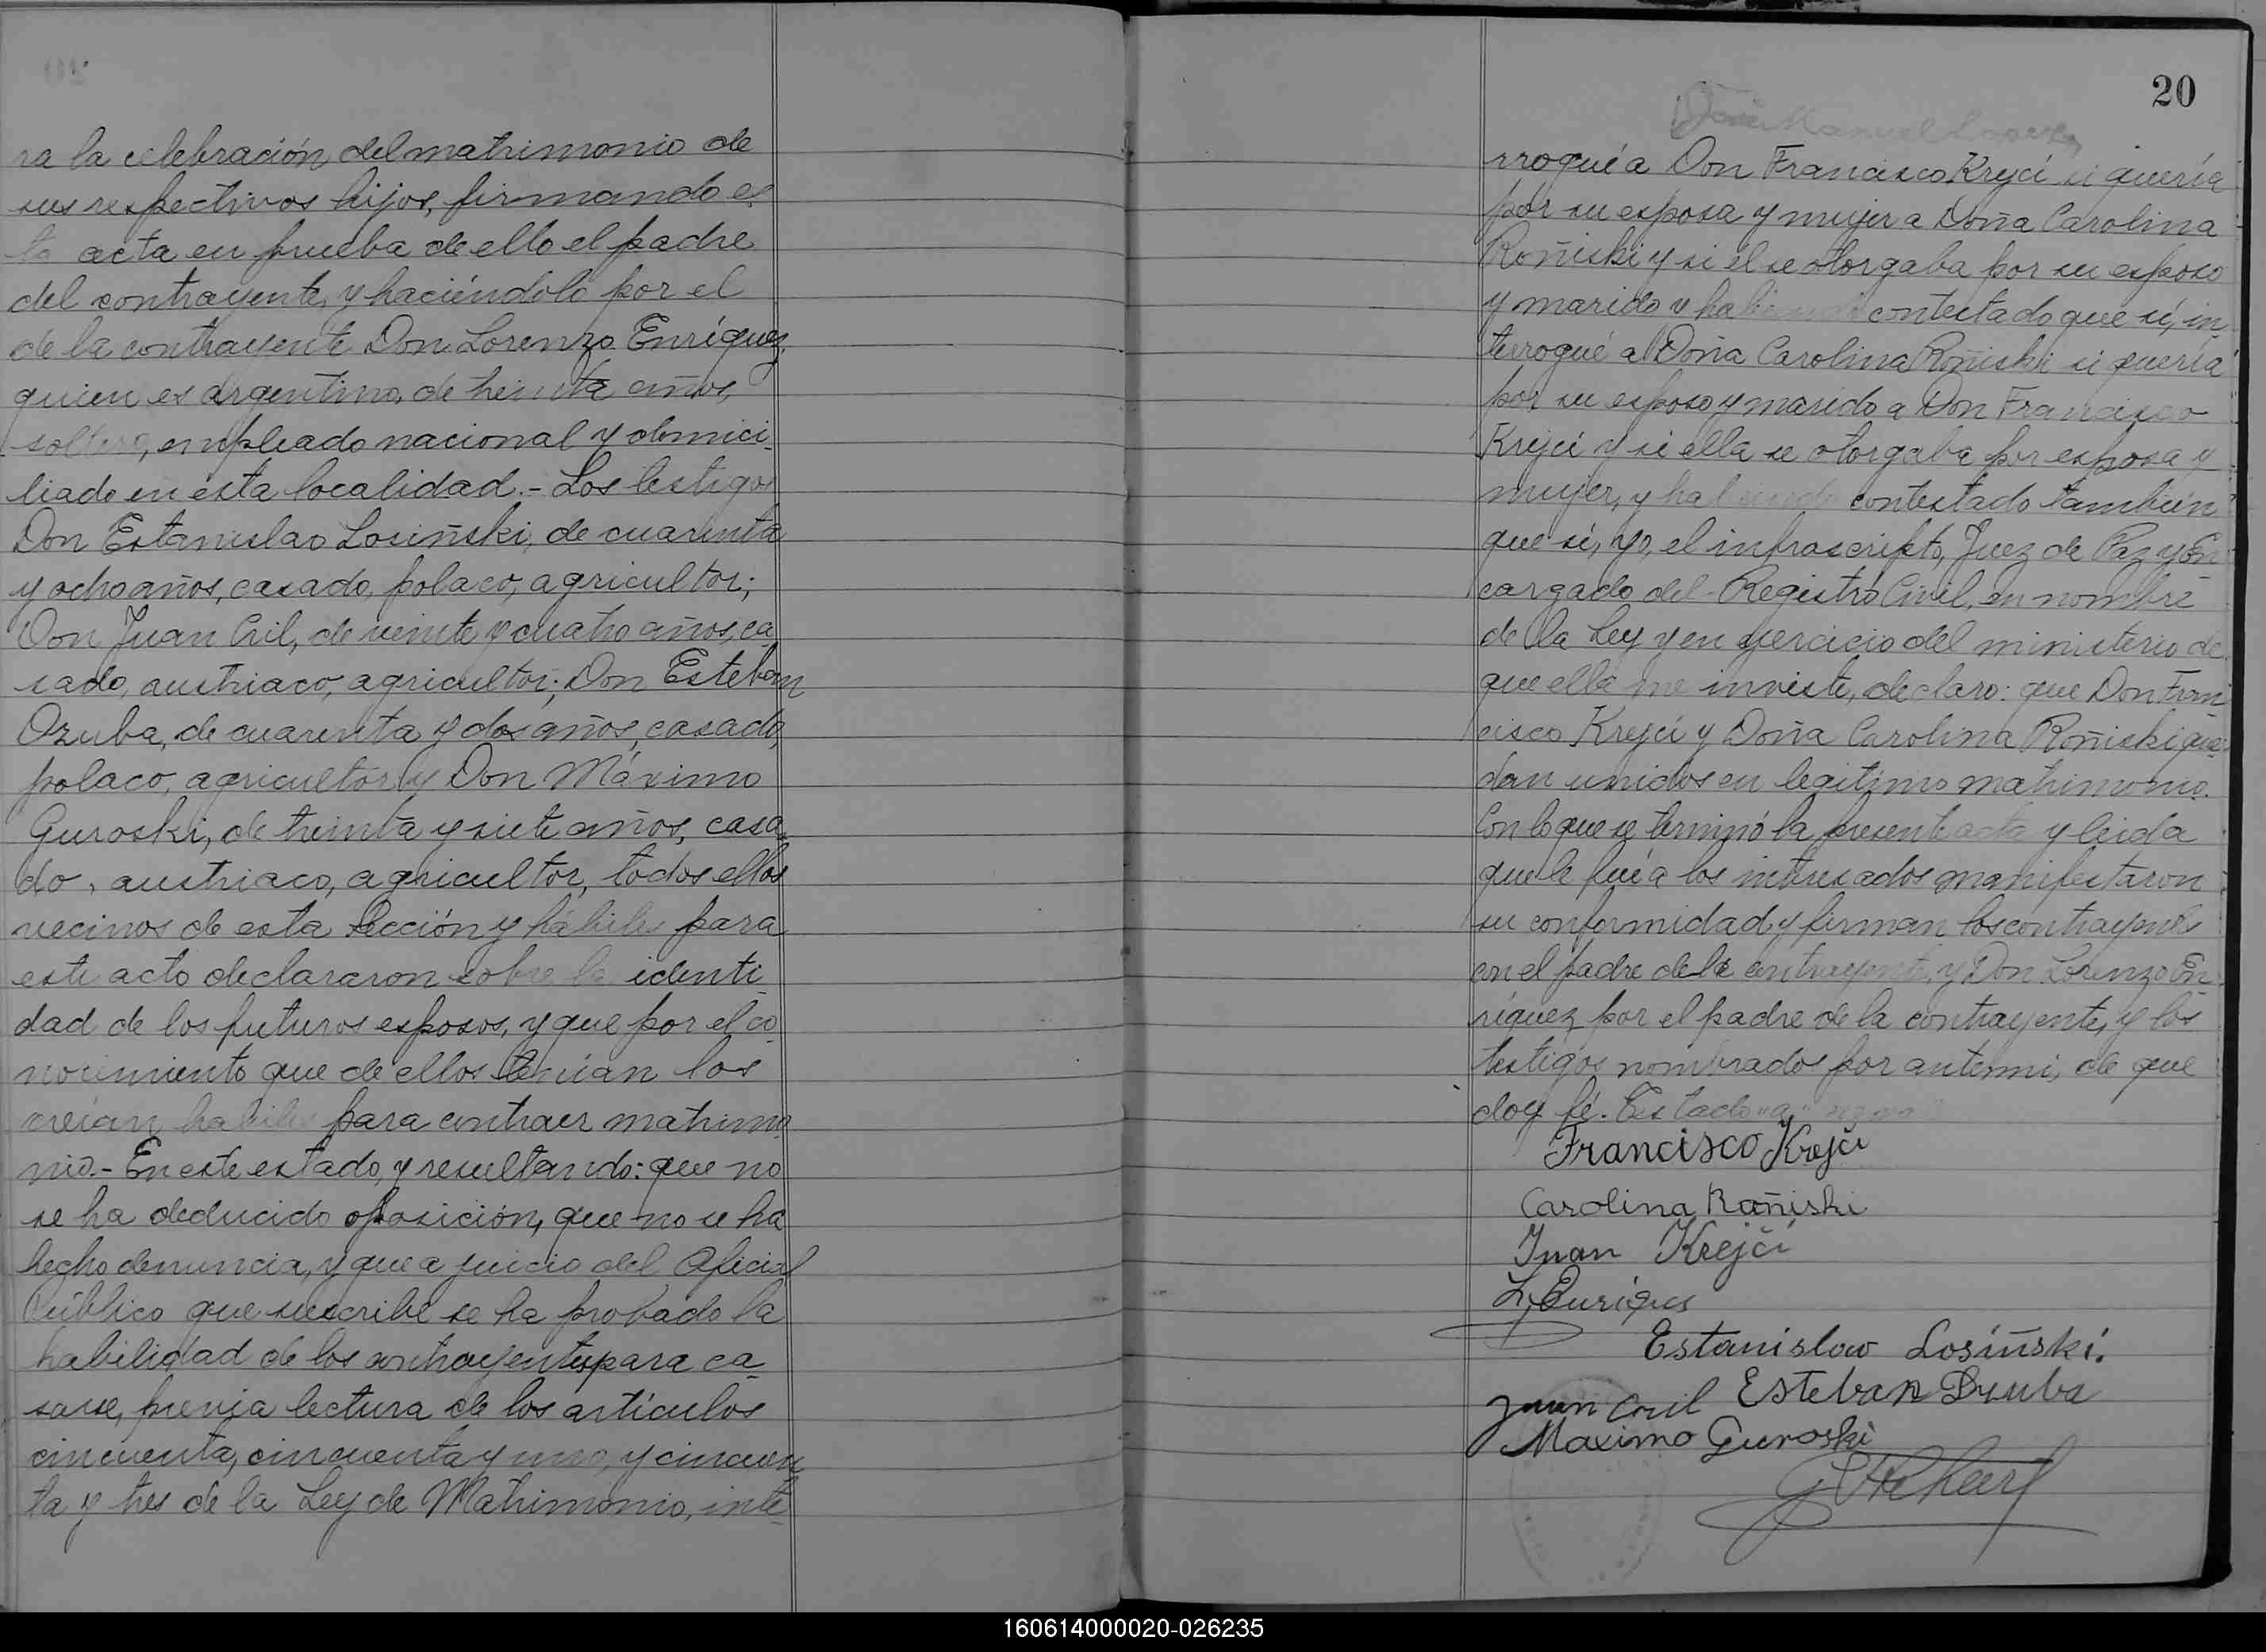 ra la celebración del matrimonio de
sus respectivos hijos, firmando es
ta acta en prueba de ello el padre
del contrayente, y haciéndolo por el
de la contrayente Don Lorenzo Enríquez
quien es argentino, de treinta años,
soltero, empleado nacional y domici
liado en ésta localidad.- Los testigos
Don Estanislao Losiñski, de cuarenta
y ocho años, casado, polaco, agricultor;
Don Juan Cril, de veinte y cuatro años, ca
sado, austriaco, agricultor; Don Esteban
Ozuba, de cuarenta y dos años, casado,
polaco, agricultor y Don Máximo
Guroski, de treinta y siete años, casa
do, austriaco, agricultor, todos ellos
vecinos de esta sección y hábiles para
este acto declararon sobre la identi
dad de los futuros esposos, y que por el co
nocimiento que de ellos tenían los
creían habiles para contraer matrimo
nio.- En este estado, y resultando: que no
se ha deducido oposición, que no se ha
hecho denuncia, y que a juicio del Oficial
Público que suscribe se ha probado la
habilidad de los contrayentes para ca
sarse, previa lectura de los artículos
cincuenta, cincuenta y uno, y cincuen
ta y tres de la Ley de Matrimonio, inte
20
rrogué a Don Francisco Krejcí si quería
por su esposa y mujer a Doña Carolina
Roñiski y si él se otorgaba por su esposo
y marido y habiendo contestado que sí, in
terrogué a Doña Carolina Roñiski si quería
por su esposo y marido a Don Francisco
Krejcí y si ella se otorgaba por esposa y
mujer, y habiendo contestado también
que sí, yo, el infrascripto, Juez de Paz y En
cargado del Registro Civil, en nombre
de la Ley y en ejercicio del ministerio de
que ella me inviste, declaro: que Don Fran
cisco Krejcí y Doña Carolina Roñiski que
dan unidos en legítimo matrimonio.
Con lo que se terminó la presente acta y leida
que le fué a los interesados manifestaron
su conformidad y firman los contrayentes
con el padre de le contrayente, y Don Lorenzo En
ríquez por el padre de la contrayente, y los
testigos nombrados por antemi, de que
doy fé. Testado "a"
Francisco Krejčí
Carolina Rañiski
Juan Krejčí
L. Enríquez
Estanislao Losiñski.
Juan Cril Esteban Dzuba
Maximo Guroski